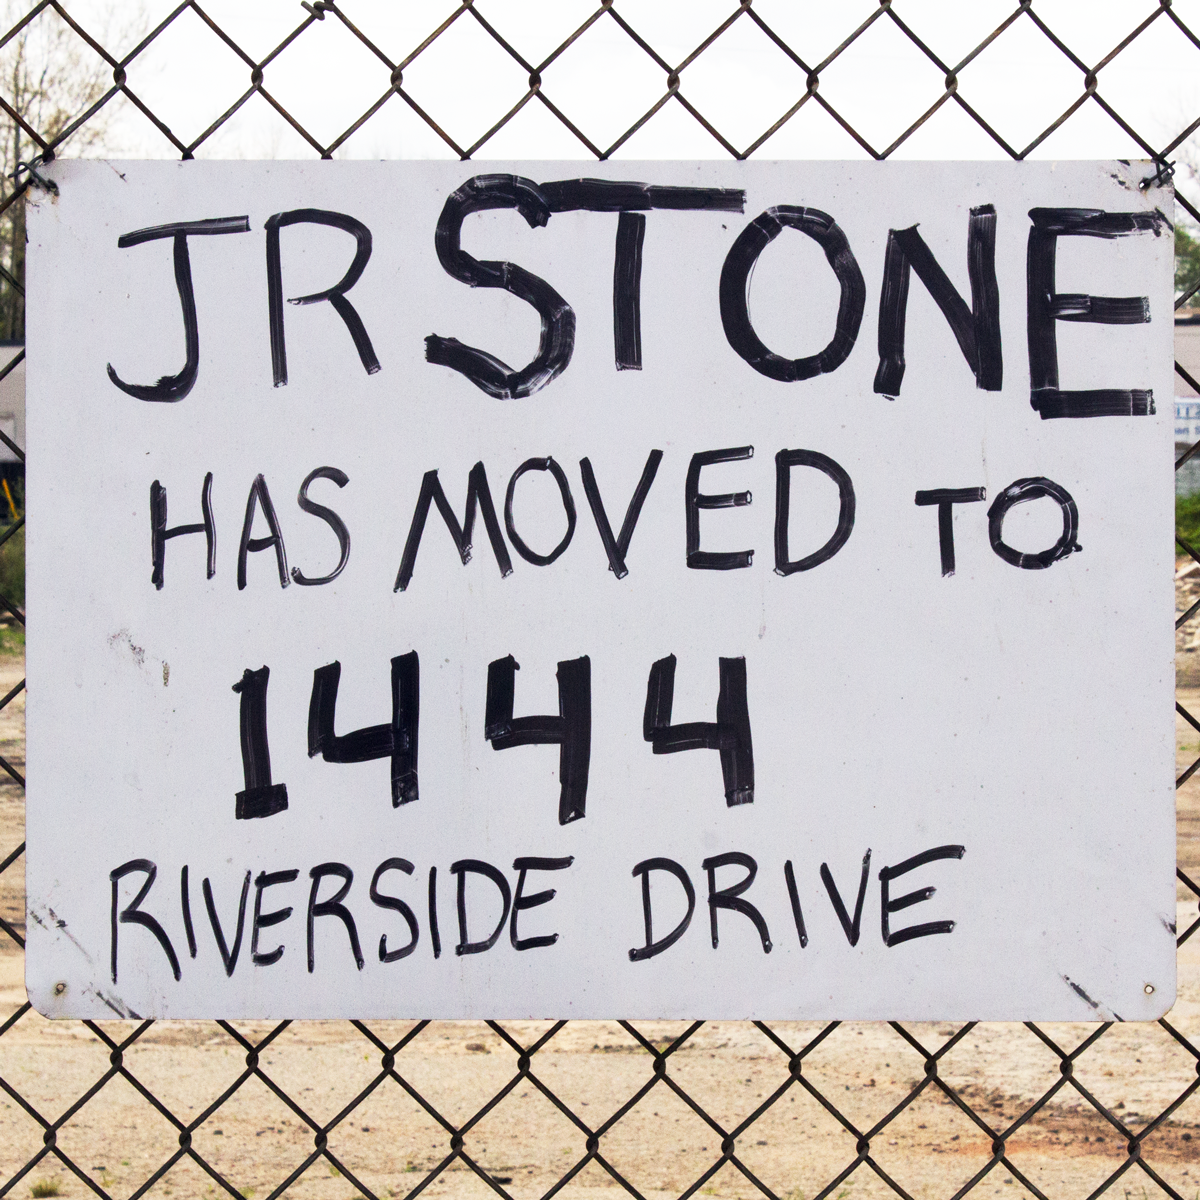 JR STONE
HAS MOVED TO
1444
RIVERSIDE DRIVE